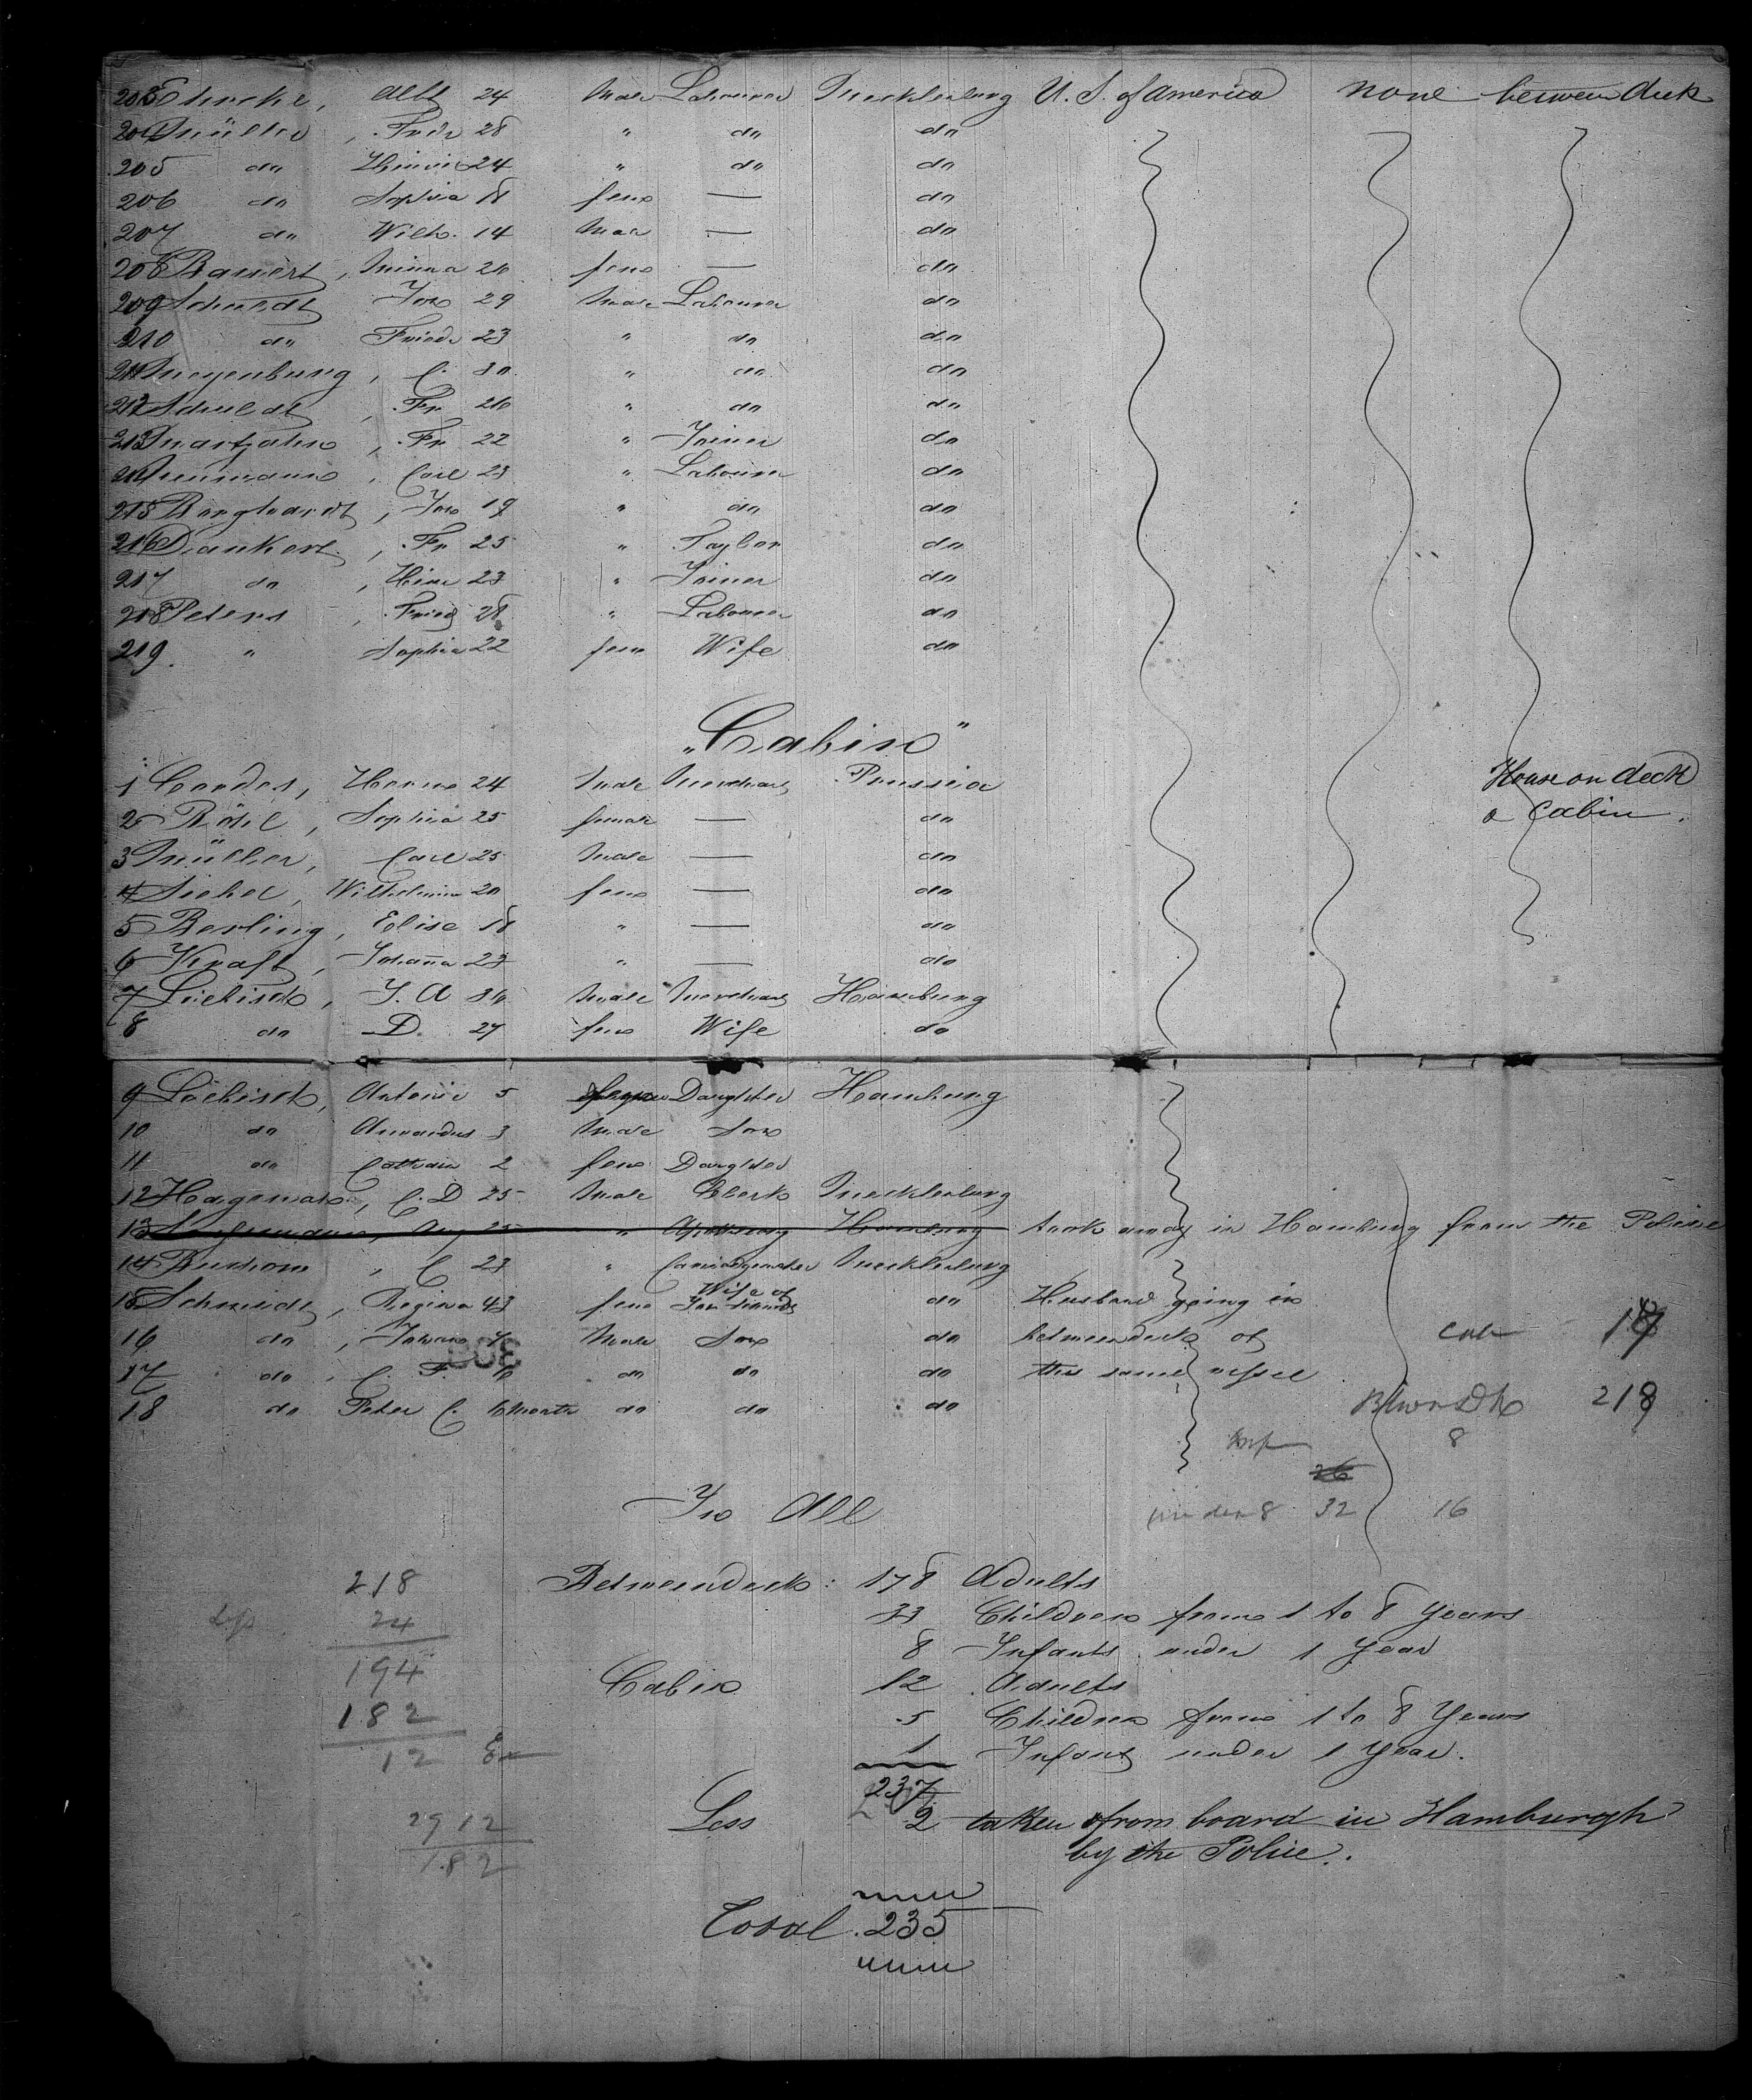 203 Albt 24 Male Labourer Mecklenburg U. S. of America none between deck
204 Müller, Fridr 28 " do do
205 do Heinr 24 " do do
206 do Sophia 18 fem — do
207 do Wilh. 14 Mal — do
208 Bauert, Minna 26 fem — do
209 Schuldt Joh 29 Male Labourer do
210 do Friedr 23 " do do
211 Meyenburg, C. 30 " do do
212 Schuldt, Fr 26 " do do
213 Martjahn, Fr 22 " Joiner do
214 Neumann, Carl 23 " Labourer do
215 Borghardt, Joh 19 " do do
216 Dankert, Fr 25 " Taylor do
217 do, Hinr 23 " Joiner do
218 Peters, Fried 28 " Labourer do
219 " Sophia 22 fem Wife do
"Cabin"
1 Cordes, Herm 24 Male Merchant Prussia House on deck
2 Röhl, Sophia 25 female — do a Cabin.
3 Müller, Carl 25 Male — do
4 Siebel, Wilhelmine 20 fem — do
5 Berling, Elise 18 " — do
6 Kraft, Johanna 23 " — do
7 Liebisch, J. A 36 Male Merchant Hamburg
8 do D. 27 fem Wife do
9 Liebisch, Antonie 5 Daughter Hamburg
10 do 3 Male Son
11 do 2 fem Daughter
12 Hagemann, C. D 25 Male Clerk Mecklenburg
13 Aug 25 " Hamburg took away in Hamburg from the Police
14 C 23 " Mecklenburg
15 Schmidt, Regina 43 fem Wife of do Husband going in
16 do, Johann Male Son do betweendeck of cab
17 do C. F. do do do this same vessel
18 do Peter C. 6 Month do do do 218
8
26
In All
under 8 32 16
218 Betweendeck: 178 Adults
Less 24 33 Children from 1 to 8 Years
8 Infants under 1 Year
194 Cabin 12 Adults
182 5 Children from 1 to 8 Years
12 1 Infant under 1 Year.
237
2912 Less 2 taken from board in Hamburgh
182 by the Police.
Total 235